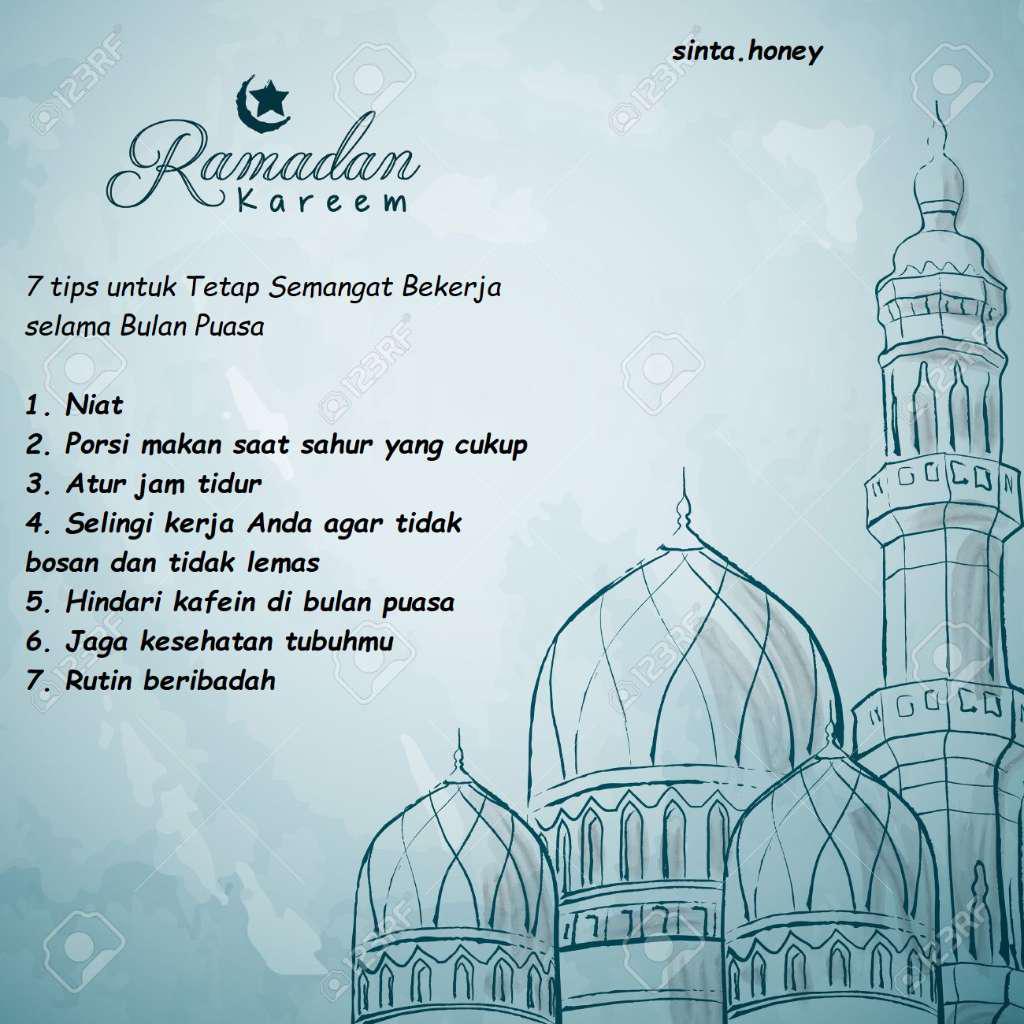 sinta.honey
Ramadan
Kareem
7 tips untuk Tetap Semangat Bekerja
selama Bulan Puasa
1. Niat
2. Porsi makan saat sahur yang cukup
3. Atur jam tidur
4. Selingi kerja Anda agar tidak
bosan dan tidak lemas
5. Hindari kafein di bulan puasa
6. Jaga kesehatan tubuhmu
7. Rutin beribadah
123RF
123RF
123RF
123RF
123RF
123RF
123RF
123RF